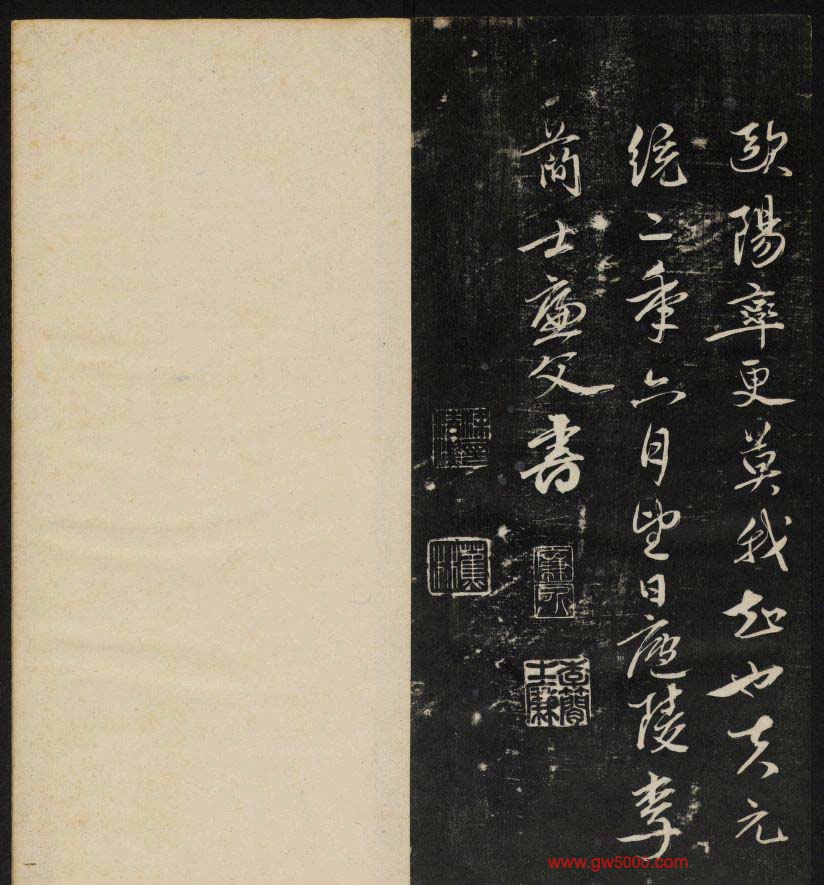 歐陽率更莫我知也夫元
統二年六月望日廬陵李
蕑士廉父書
蕉林
李簡士廉
www.gw5000.com